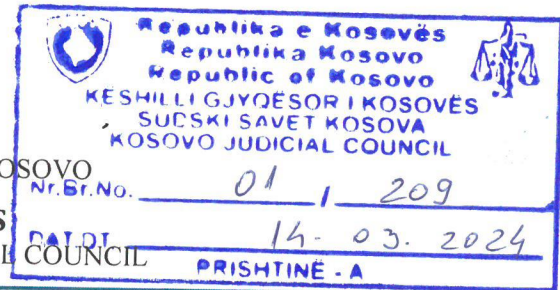 Republika e Kosovës
Republika Kosovo
Republic of Kosovo
KËSHILLI GJYQËSOR I KOSOVËS
SUDSKI SAVET KOSOVA
KOSOVO JUDICIAL COUNCIL
OSOVO
Nr.Br.No. 01 / 209
S
DAT.DT. 14. 03. 2024
L COUNCIL
PRISHTINË - A